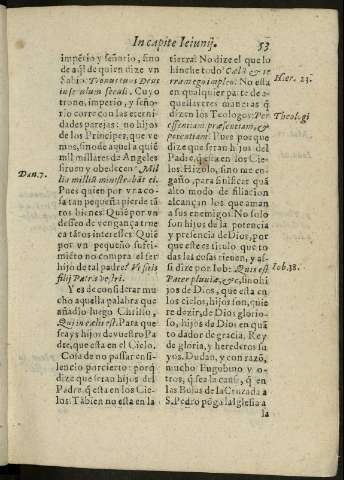 In capite Ieiunij. 53
imperio y señorio, sino
de aql̃ de quien dize vn
Sabio. Tronus tuus Deus
in seculum seculi. Cuyo
trono, imperio, y seño-
rio corre con las eterni-
dades parejas: no hijos
de los Principes, que ve-
mos, sino de aquel a quiẽ
mil millares de Angeles
siruen y obedecen: Mil-
lia milliũ ministrabãt ei.
Pues quien por vna co-
sa tan pequeña pierde tã
tos bienes? Quiẽ por vn
desseo de vengança true
ca tãtos interesses? Quiẽ
por vn pequeño sufri-
miẽto no compra el ser
hijo de tal padre? Vt sitis
filij Patris vestri.
Y es de considerar mu
cho aquella palabra que
añadio luego Christo,
Qui in cælis est. Para que
seays hijos de vuestro Pa
dre, que esta en el Cielo.
Cosa de no passar en si-
lencio por cierto: porq̃
dize que seran hijos del
Padre q̃ esta en los Cie-
los. Tãbien no esta en la
Dan. 7.
tierra? No dize el que lo
hinche todo? Cœlũ & te
rram ego impleo? No esta
en qualquier parte de a-
quellas tres maneras q̃
dizen los Teologos: Per
essentiam præsentiam, &
potentiam? Pues por que
dize que seran hijos del
Padre q̃ esta en los Cie-
los. Hizolo, sino me en-
gaño, para sinificar quã
alto modo de filiacion
alcançan los que aman
a sus enemigos. No solo
son hijos de la potencia
y presencia de Dios, por
que este es titulo que to
das las cosas tienen, y as-
si dize por Iob: Quis est
Pater pluuiæ, &c, sino hi
jos de Dios, que esta en
los cielos, hijos son, quie
re dezir, de Dios glorio-
so, hijos de Dios en quã
to dador de gracia, Rey
de gloria, y herederos su
yos. Dudan, y con razõ,
mucho Eugubino y o-
tros, q̃ sea la causa, q̃ en
las Bulas de la Cruzada a
S. Pedro põga la Iglesia a
la
Hier. 23.
Theologi
Iob. 38.